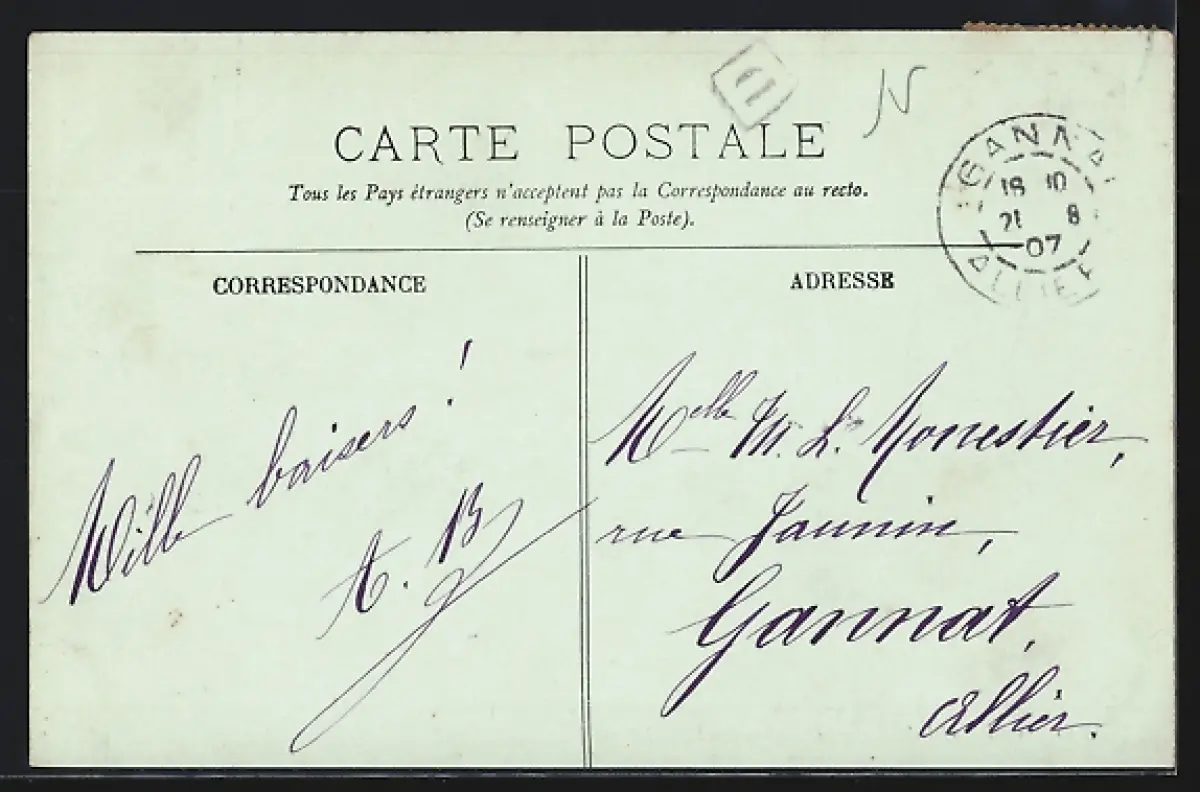 CARTE POSTALE
Tous les Pays étrangers n'acceptent pas la Correspondance au recto.
(Se renseigner à la Poste).
GANNAT
18 10
21 8
07
ALLIER
CORRESPONDANCE
Mille baisers !
A. B
ADRESSE
Melle M. L. Monestier,
rue Jaunin,
Gannat,
Allier.